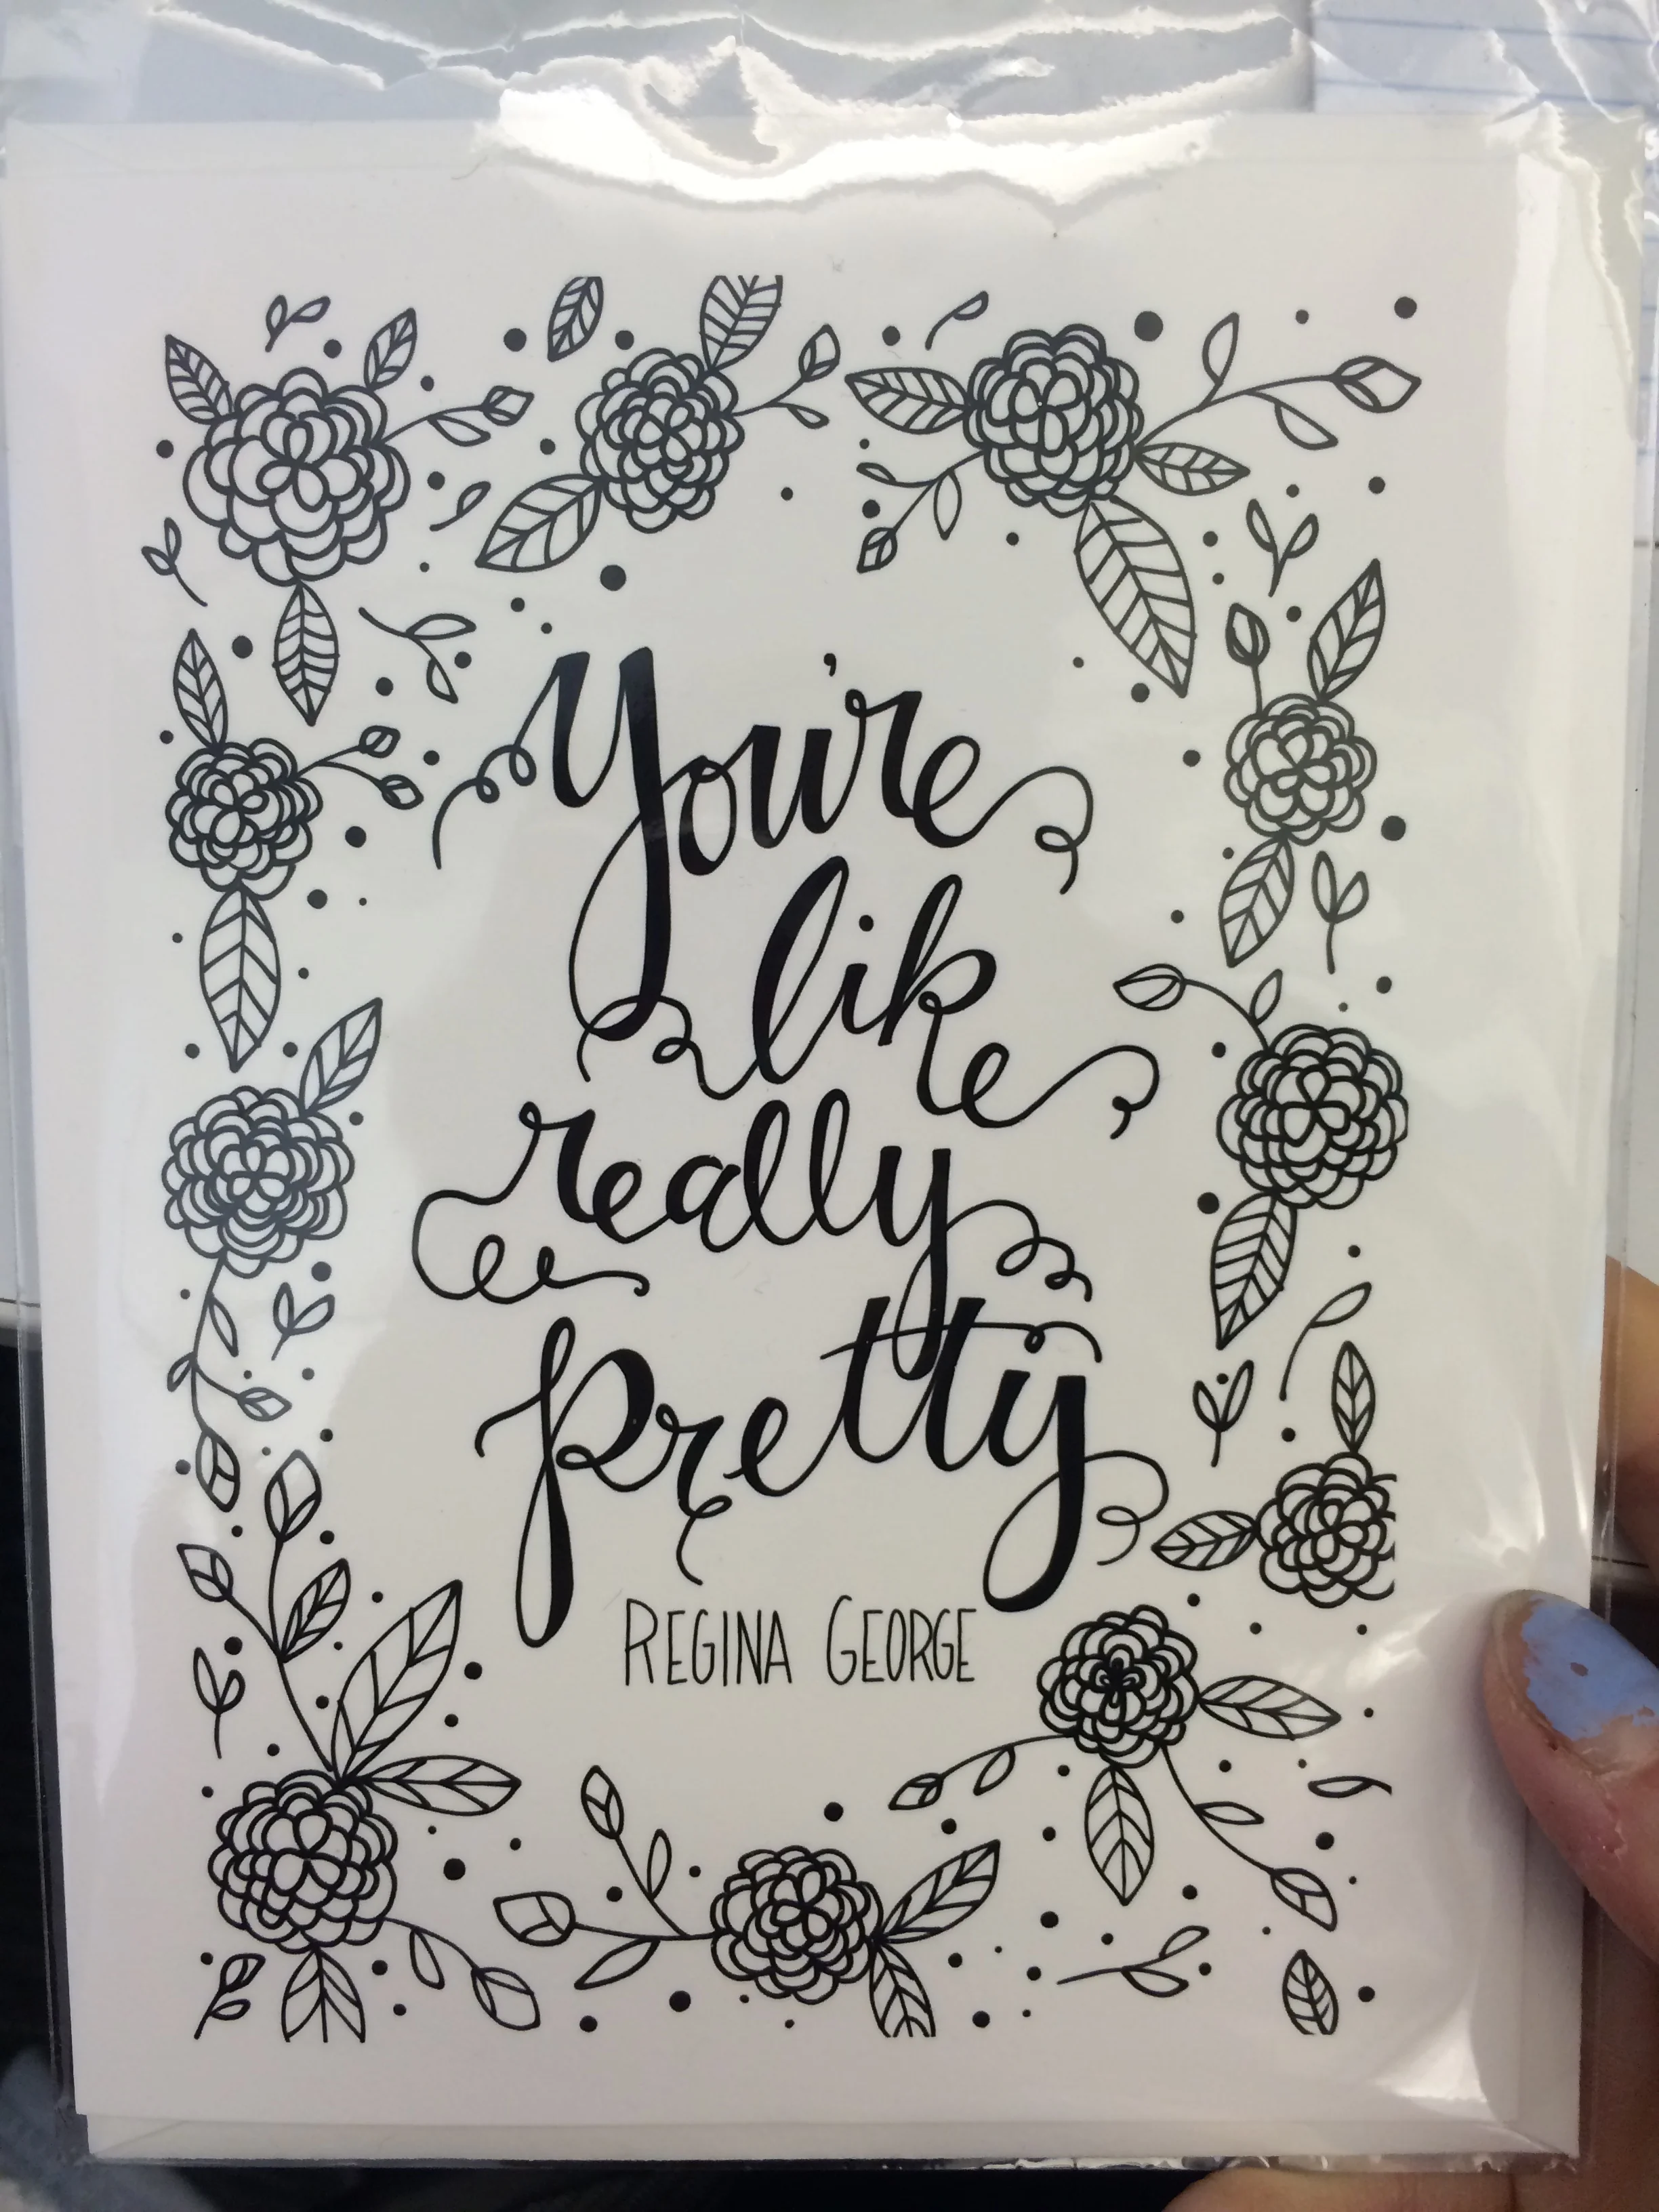 You're
like
really
pretty
REGINA GEORGE